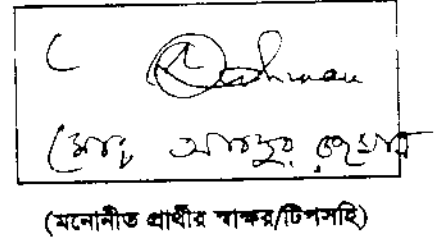 Rahman
মোঃ আবদুর রহমান
(মনোনীত প্রার্থীর স্বাক্ষর/টিপসহি)